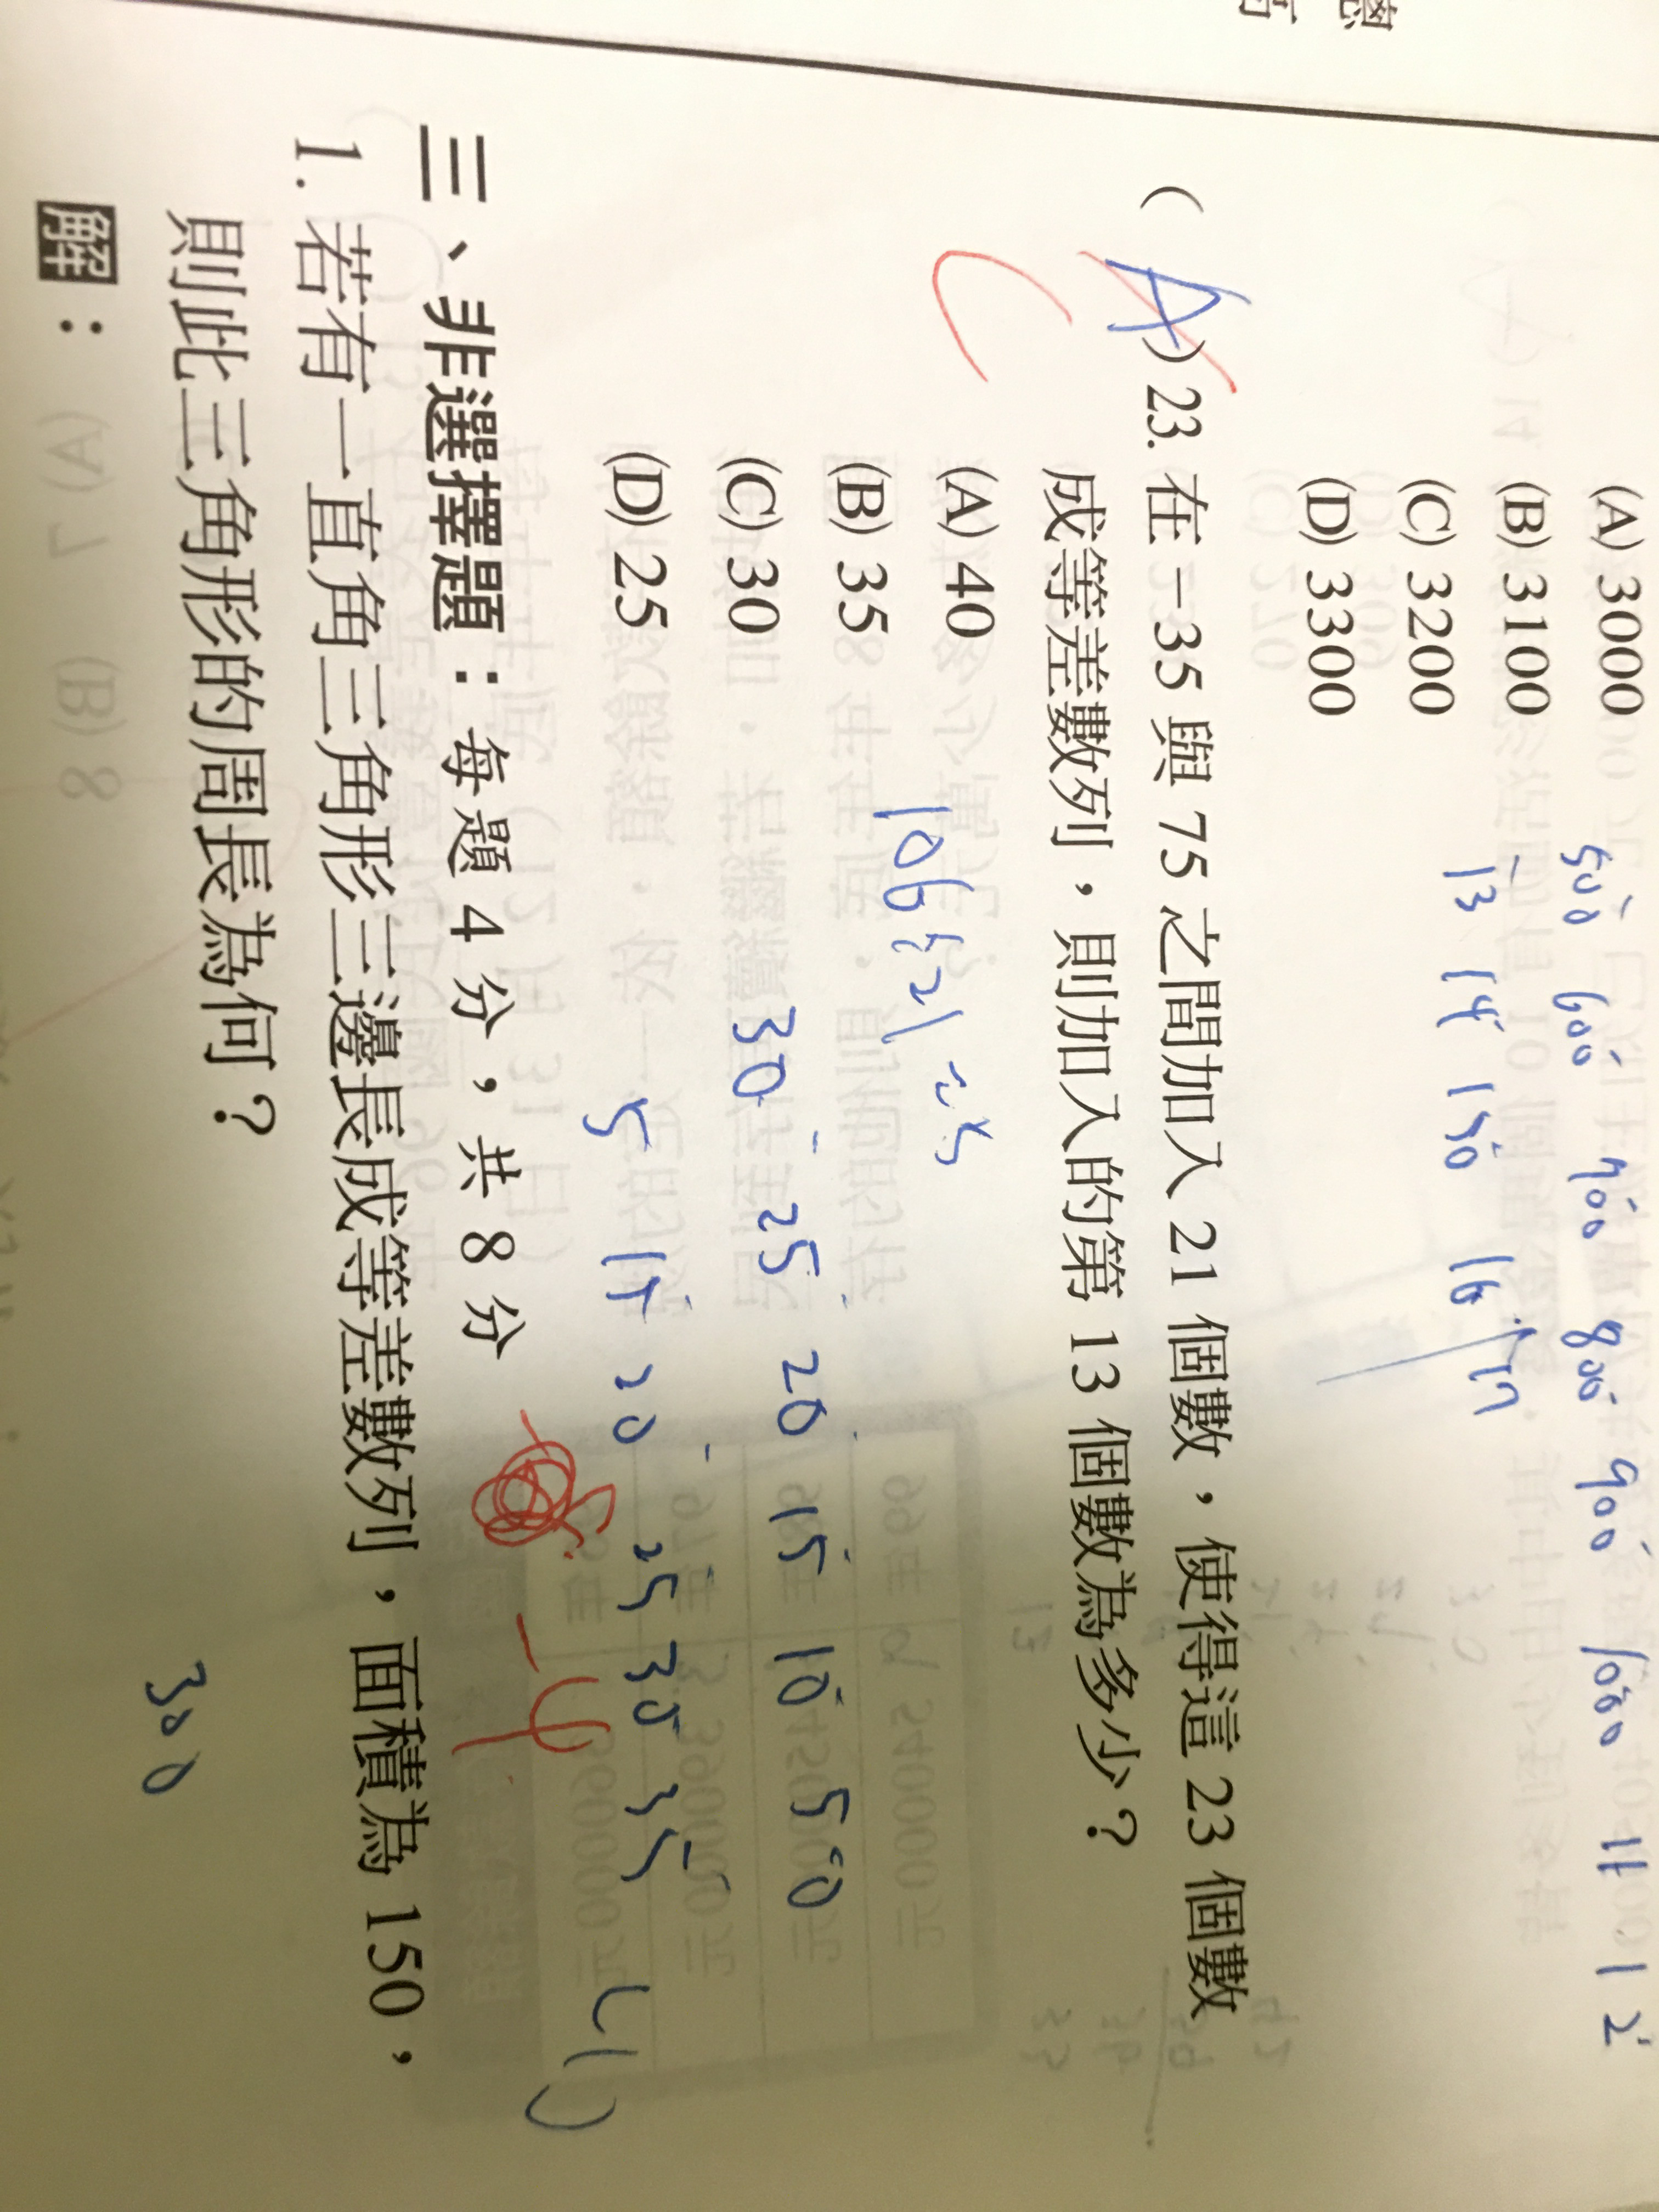 (A) 3000
(B) 3100
(C) 3200
(D) 3300
500 600 700 800 900 1000 11 12
13 14 150 16 17
( A ) 23. 在 -35 與 75 之間加入 21 個數，使得這 23 個數
成等差數列，則加入的第 13 個數為多少？
C
(A) 40
(B) 35
(C) 30
(D) 25
106÷21=5
30 25 20 15 10 5 0
5 15 20 25 30 35 40
-4
三、非選擇題：每題 4 分，共 8 分
1. 若有一直角三角形三邊長成等差數列，面積為 150，
則此三角形的周長為何？
300
解：